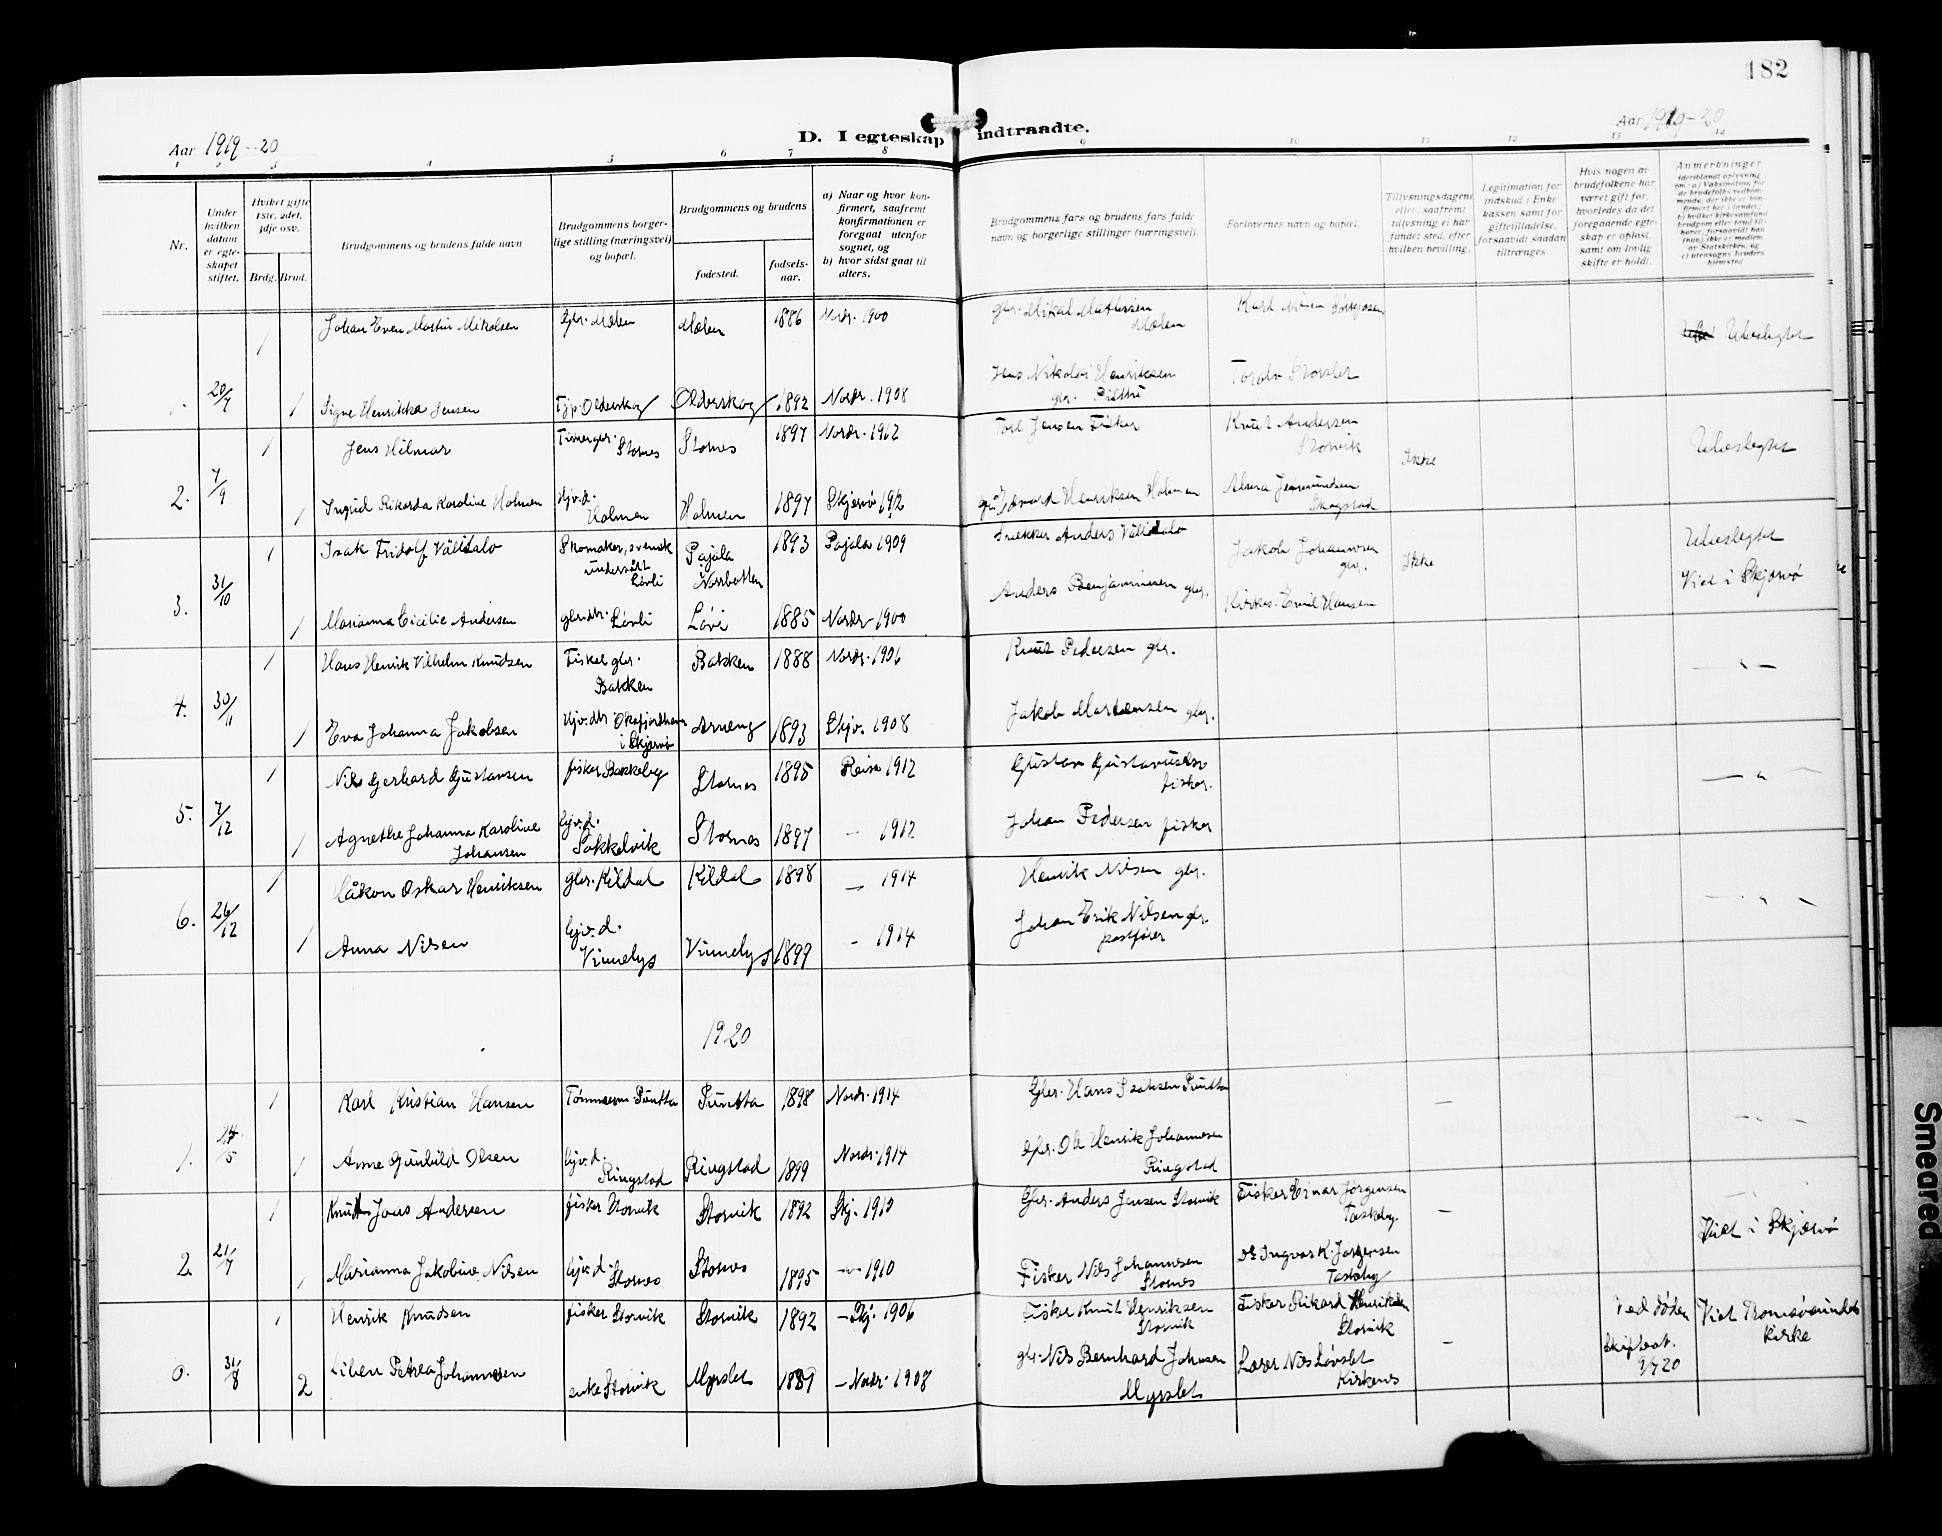 182
Aar 1919-20
D. I egteskap indtraadte.
Aar 1919-20
1 2 3 4 5 6 7 8 9 10 11 12 13 14
Nr.
Under hvilken datum er egteskapet stiftet.
Hvilket gifte 1ste, 2det, 3dje osv.
Brdg. Brud.
Brudgommens og brudens fulde navn
Brudgommens borgerlige stilling (næringsvei) og bopæl.
Brudgommens og brudens
fødested.
fødselsaar.
a) Naar og hvor konfirmert, saafremt konfirmationen er foregaat utenfor sognet, og
b) hvor sidst gaat til alters.
Brudgommens fars og brudens fars fulde navn og borgerlige stillinger (næringsvei)
Forlovernes navn og bopæl.
Tillysningsdagene eller, saafremt tillysning ei har fundet sted, efter hvilken bevilling.
Legitimation for indskud i Enkekassen samt for giftetilladelse, forsaavidt saadan tiltrænges.
Hvis nogen av brudefolkene har været gift før, hvorledes da det foregaaende egteskap er opløst, samt om lovlig skifte er holdt.
Anmerkninger
1 Johan Even Martin Mikalsen Gbr. Mælen Mælen 1886 Nordr. 1900 gbr. Mikal Mathisen Mælen Karl Nilsen Ubeslegtet
1. 20/7 1 Signe Henrikka Jensen Olderskog Olderskog 1892 Nordr. 1908 Jens Nikolai Henriksen gbr. Toralv Storslet
1 Jens Hilmar Stornes Stornes 1897 Nordr. 1912 Jensen Fisker Knut Andersen Storvik Ikke Ubeslegtet
2. 7/9 1 Ingrid Rikarda Karoline Holmen Hjv.d. Holmen Holmen 1897 Skjervø 1912 Edvard Henriksen Holmen Skogstad
1 Isak Fridolf Vällitalo Skomaker, svensk undersått Løvli Pajala Norrbotten 1893 Pajala 1909 Anders Vällitalo Jakob Johannesen gbr. Ikke Ubeslegtet
3. 31/10 1 Marianna Cicilie Andersen gbr.dtr. Løvli Løvli 1885 Nordr 1900 Anders Benjaminsen gbr. Kirkes. Emil Hansen Viet i Skjervø
1 Hans Henrik Vilhelm Knudsen Fisker gbr. Bakken Bakken 1888 Nordr. 1906 Knut Pedersen gbr. — " —
4. 30/11 1 Eva Johanna Jakobsen Hjv. dtr. i Skjervø Arneng 1893 Skjv. 1908 Jakob Mortensen gbr.
1 Nils Gerhard Gustavsen fisker Bakkeby Stornes 1895 Reisa 1912 Gustav Gustavusen fisker. — " —
5. 7/12 1 Agnethe Johanna Karoline Johansen hjv.d. Sokkelvik Stornes 1897 — 1912 Johan Pedersen fisker
1 Håkon Oskar Henriksen gbr. Kildal Kildal 1898 — 1914 Henrik Nilsen gbr. — " —
6. 26/12 1 Anna Nilsen hjv. d. Vinnelys Vinnelys 1899 - 1914 Johan Erik Nilsen gbr. postfører
1920
1 Karl Kristian Hansen Tømmerm. Puntta Puntta 1898 Nordr. 1914 Gbr. Hans Isaksen Puntta — — " —
1. 24/5 1 Anne Gunhild Olsen hjv. d. Ringstad Ringstad 1899 Nordr. 1914 Gbr. Ole Henrik Johannesen Ringstad
1 Knut Jons Andersen fisker Storvik Storvik 1892 Skj. 1910 Gbr. Anders Jensen Storvik Fisker Einar Jørgensen Taskeby. — — " —
2. 21/7 1 Marianna Jakobine Nilsen hjv. d. Stornes Stornes 1895 — " — 1910 Fisker Nils Johannesen Stornes Ds. Ingvar K. Jørgensen Taskeby Viet i Skjærvø
1 Henrik Knudsen fisker Storvik Storvik 1892 — Skj. 1906 Fisker Knut Henriksen Storvik Fisker Rikard Henriksen Storvik — Ved døden Skifteat. 9/7 20 Viet Tromsøsundets kirke
31/8 2 Petrea Johannesen enke Storvik Myrslet 1889 — Nordr. 1908 gbr. Nils Bernhard Johnsen Myrslet Lærer Nils Løvslet Kirkenes
Smeared